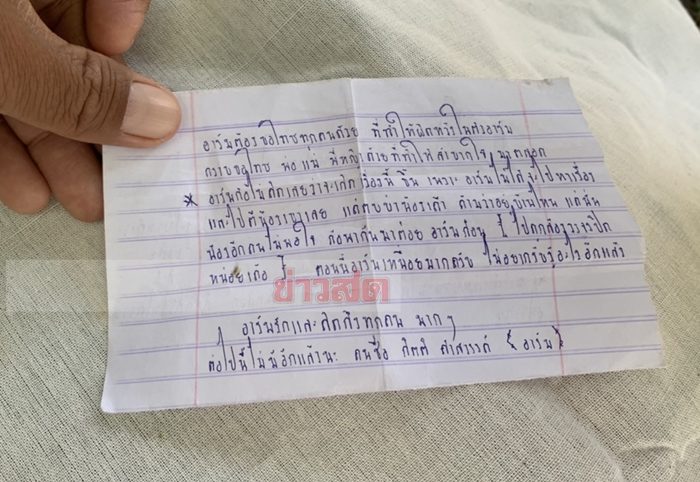 อาร์มต้องขอโทษทุกคนด้วย ที่ทำให้ผิดหวังในตัวอาร์ม
กราบขอโทษ พ่อ แม่ พี่หญิง ด้วยที่ทำให้ลำบากใจ
* อาร์มก็ไม่คิดเลยว่าจะเกิดเรื่องนี้ ขึ้น เพราะ อาร์มไม่ได้ไปหาเรื่อง
และไปตีน้องเขาเลย แค่ ถามว่าอยู่บ้านไหน แต่
น้องอีกคนไม่พอใจ ก็ อาร์มก่อน ไปดูกล้องวงจรปิด
ข่าวสด
หน่อยเถอะ ตอนนี้อาร์มเหนื่อยมากครับ ไม่อยากรับรู้อะไรอีกแล้ว
อาร์มรักและคิดถึงทุกคน มากๆ
ต่อไปนี้ไม่มีอีกแล้วนะ คนชื่อ (อาร์ม)